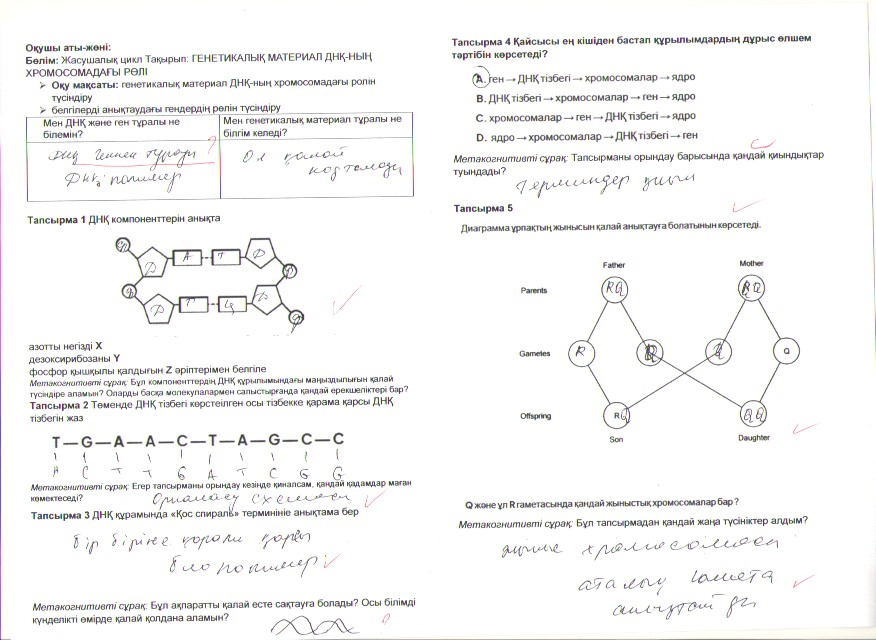 Оқушы аты-жөні:
Бөлім: Жасушалық цикл Тақырып: ГЕНЕТИКАЛЫҚ МАТЕРИАЛ ДНҚ-НЫҢ
ХРОМОСОМАДАҒЫ РӨЛІ
Оқу мақсаты: генетикалық материал ДНҚ-ның хромосомадағы ролін
түсіндіру
белгілерді анықтаудағы гендердің рөлін түсіндіру
Мен ДНҚ және ген тұралы не
білемін?
Мен генетикалық материал тұралы не
білгім келеді?
ДНҚ геннен тұрады
ДНҚ полимер
Ол қалай
Тапсырма 1 ДНҚ компоненттерін анықта
Ф
Д А Т Д
Ф Ф
Д Г Ц Д
Ф
азотты негізді X
дезоксирибозаны Y
фосфор қышқылы қалдығын Z әріптерімен белгіле
Метакогнитивті сұрақ: Бұл компоненттердің ДНҚ құрылымындағы маңыздылығын қалай
түсіндіре аламын? Оларды басқа молекулалармен салыстырғанда қандай ерекшеліктері бар?
Тапсырма 2 Төменде ДНҚ тізбегі көрстеілген осы тізбекке қарама қарсы ДНҚ
тізбегін жаз
T—G—A—A—C—T—A—G—C—C
A C T T G A T C G G
Метакогнитивті сұрақ: Егер тапсырманы орындау кезінде қиналсам, қандай қадамдар маған
көмектеседі?
Орналасу схемасы
Тапсырма 3 ДНҚ құрамында «Қос спираль» терминініе анықтама бер
бір біріне қарама қарсы
биополимер
Метакогнитивті сұрақ: Бұл ақпаратты қалай есте сақтауға болады? Осы білімді
күнделікті өмірде қалай қолдана аламын?
Тапсырма 4 Қайсысы ең кішіден бастап құрылымдардың дұрыс өлшем
тәртібін көрсетеді?
A. ген → ДНҚ тізбегі → хромосомалар → ядро
B. ДНҚ тізбегі → хромосомалар → ген → ядро
C. хромосомалар → ген → ДНҚ тізбегі → ядро
D. ядро → хромосомалар → ДНҚ тізбегі → ген
Метакогнитивті сұрақ: Тапсырманы орындау барысында қандай қиындықтар
туындады?
Терминдер қиын
Тапсырма 5
Диаграмма ұрпақтың жынысын қалай анықтауға болатынын көрсетеді.
Father Mother
Parents RQ
Gametes R Q
Offspring RQ QQ
Son Daughter
Q және ұл R гаметасында қандай жыныстық хромосомалар бар ?
Метакогнитивті сұрақ: Бұл тапсырмадан қандай жаңа түсініктер алдым?
жыныс хромосомасы
аталық гамета